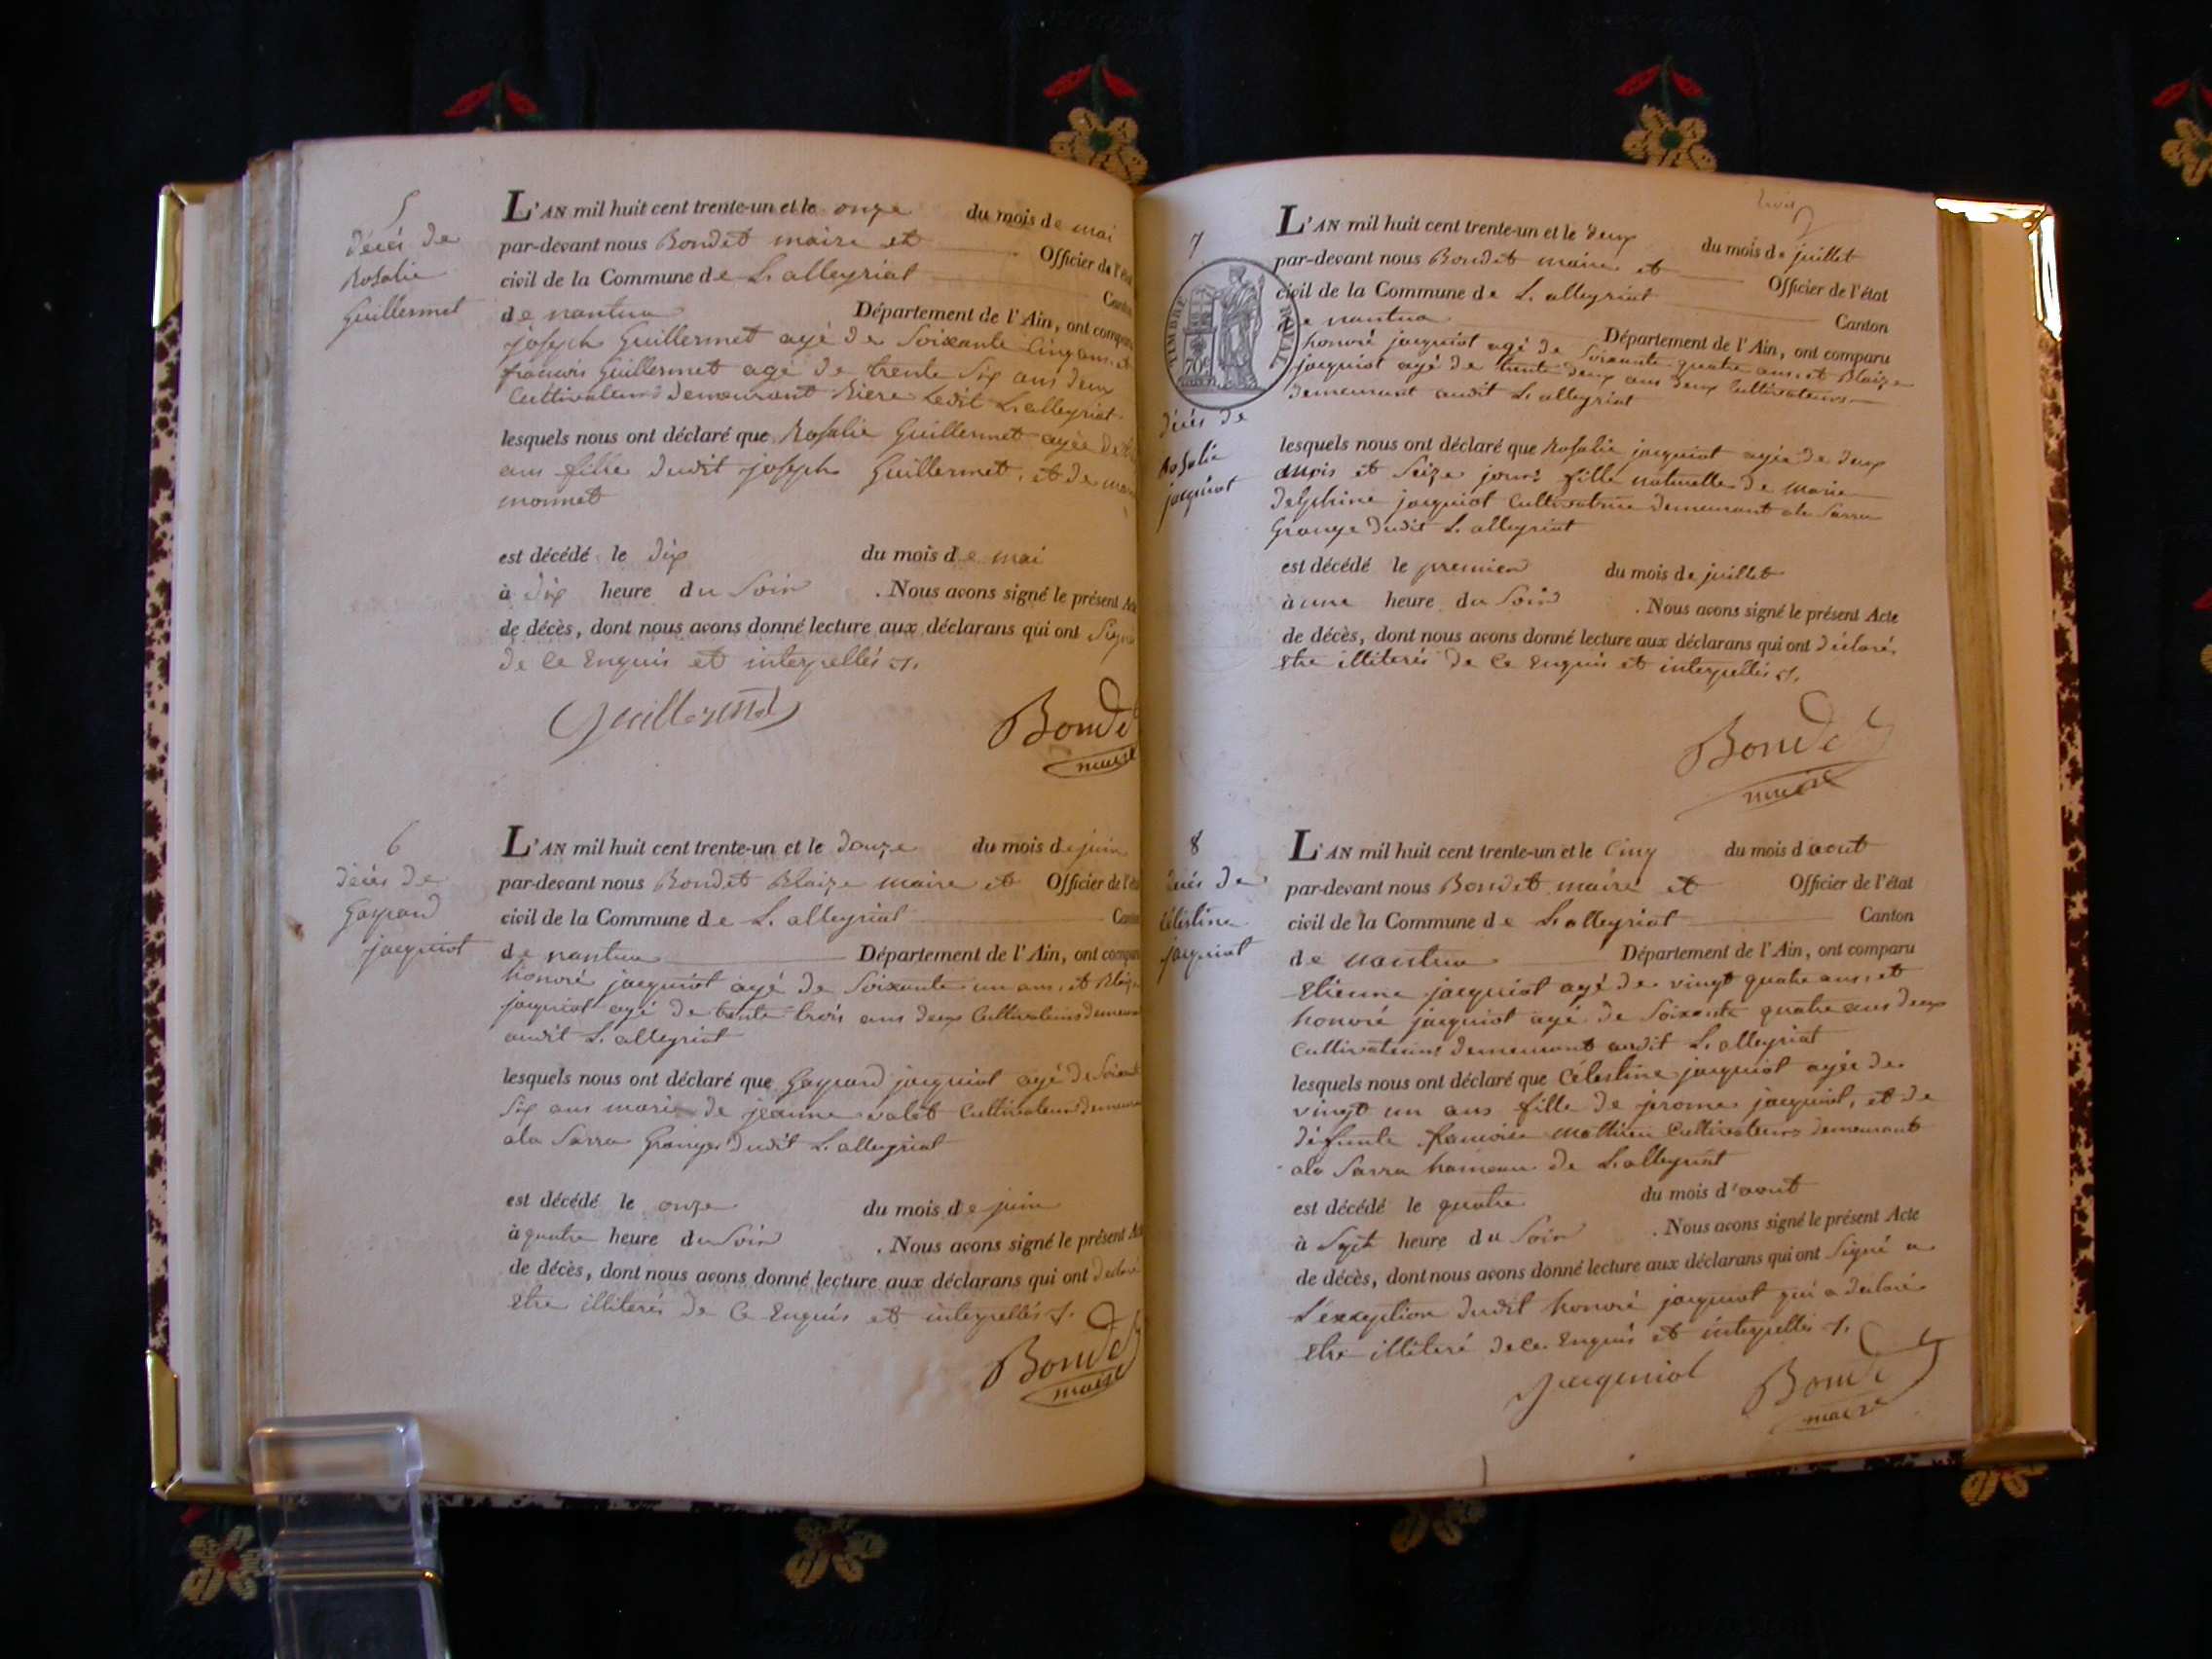 5
décès de
Rosalie
Guillermet
L'AN mil huit cent trente-un et le onze du mois de mai
par-devant nous Bondet maire et Officier de l'état
civil de la Commune de L. alleyriat Canton
de nantua Département de l'Ain, ont comparu
joseph Guillermet agé de Soixante Cinq ans et
francois Guillermet agé de trente Six ans deux
Cultivateurs demeurant Riere Ledit L. alleyriat
lesquels nous ont déclaré que Rosalie Guillermet agée de
ans fille dudit joseph Guillermet, et de
monnet
est décédé le dix du mois de mai
à dix heure du Soir . Nous avons signé le présent Acte
de décès, dont nous avons donné lecture aux déclarans qui ont Signé
de Ce Enquis et interpellés
Guillermet
Bondet
maire
6
décès de
Gaspard
jacquiot
L'AN mil huit cent trente-un et le douze du mois de juin
par-devant nous Bondet Blaize maire et Officier de l'état
civil de la Commune de L. alleyriat Canton
de nantua Département de l'Ain, ont comparu
honoré jacquiot agé de Soixante un ans, et Blaize
jacquiot agé de trente trois ans deux Cultivateurs demeurant
audit L. alleyriat
lesquels nous ont déclaré que Gaspard jacquiot agé de Soixante
Six ans mari de jeanne valet Cultivateur demeurant
ala Sarra Granges dudit L. alleyriat
est décédé le onze du mois de juin
à quatre heure du Soir . Nous avons signé le présent Acte
de décès, dont nous avons donné lecture aux déclarans qui ont déclaré
Etre illiterés de Ce Enquis et interpellés
Bondet
maire
7
TIMBRE ROYAL
70c
décès de
Rosalie
jacquiot
L'AN mil huit cent trente-un et le deux du mois de juillet
par-devant nous Bondet maire et Officier de l'état
civil de la Commune de L. alleyriat Canton
de nantua Département de l'Ain, ont comparu
honoré jacquiot agé de Soixante quatre ans, et Blaize
jacquiot agé de trente deux ans deux Cultivateurs
demeurant audit L. alleyriat
lesquels nous ont déclaré que Rosalie jacquiot agée de deux
mois et Seize jours fille naturelle de marie
delphine jacquiot Cultivatrice demeurant ala Sarra
Grange dudit L. alleyriat
est décédé le premier du mois de juillet
à une heure du Soir . Nous avons signé le présent Acte
de décès, dont nous avons donné lecture aux déclarans qui ont déclaré
Etre illiterés de Ce Enquis et interpellés
Bondet
maire
8
décès de
Célestine
jacquiot
L'AN mil huit cent trente-un et le Cinq du mois d'aout
par-devant nous Bondet maire et Officier de l'état
civil de la Commune de L. alleyriat Canton
de nantua Département de l'Ain, ont comparu
Etienne jacquiot agé de vingt quatre ans, et
honoré jacquiot agé de Soixante quatre ans deux
Cultivateurs demeurant audit L. alleyriat
lesquels nous ont déclaré que Célestine jacquiot agée de
vingt un ans fille de jerome jacquiot, et de
défunte francoise mathieu Cultivateurs demeurant
ala Sarra hameau de L. alleyriat
est décédé le quatre du mois d'aout
à Sept heure du Soir . Nous avons signé le présent Acte
de décès, dont nous avons donné lecture aux déclarans qui ont Signé a
L'exception dudit honoré jacquiot qui a declaré
Etre illiteré de Ce Enquis et interpellés
Jacquiot
Bondet
maire